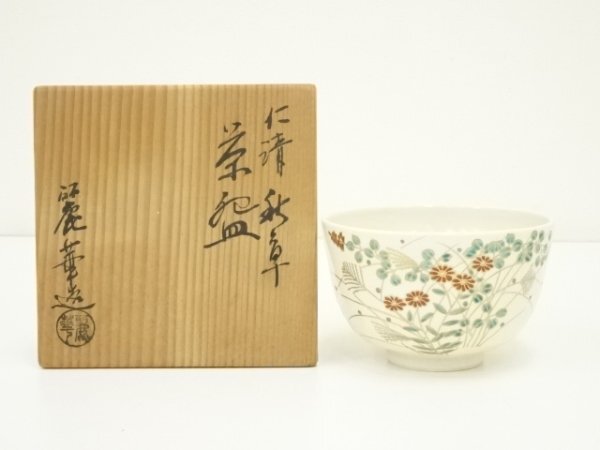 仁清 秋草
茶盌
麗華造